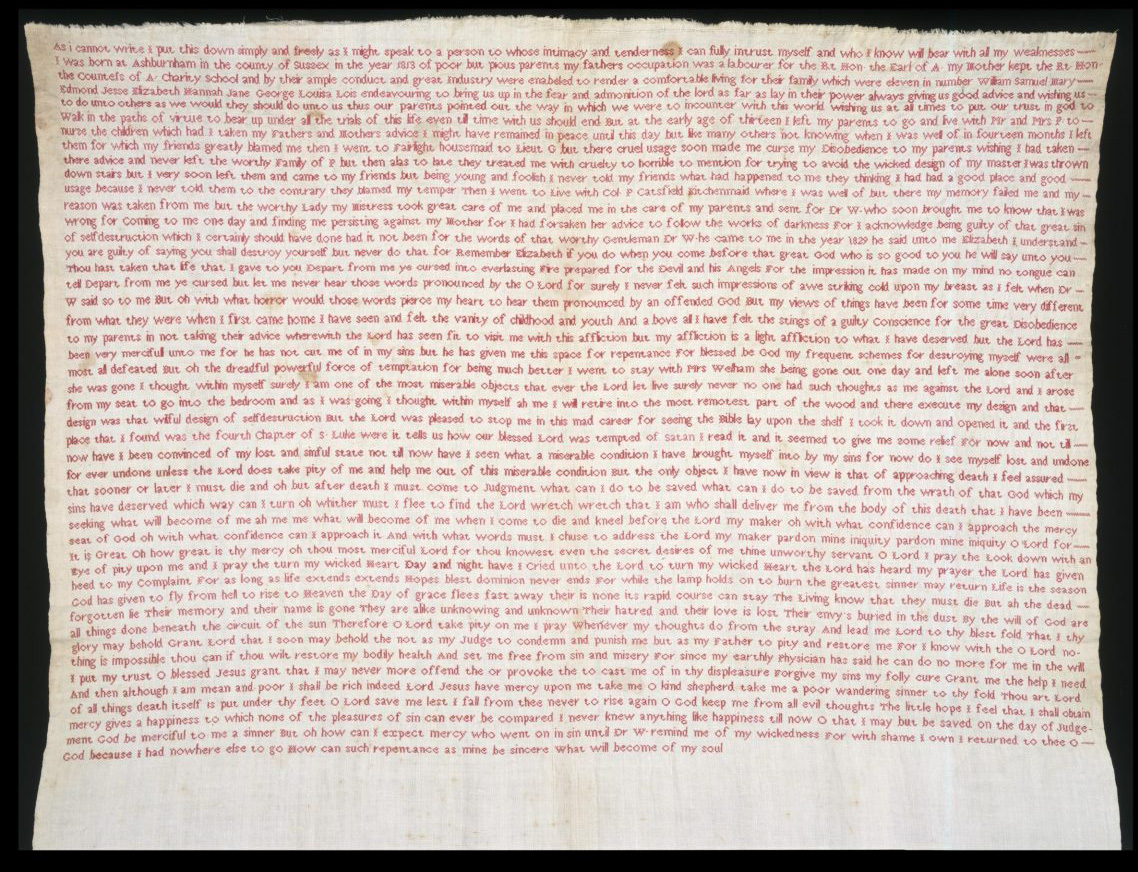 As i cannot write I put this down simply and freely as I might speak to a person to whose intimacy and tenderness I can fully intrust myself and who I know will bear with all my weaknesses —
I was born at Ashburnham in the county of Sussex in the year 1813 of poor but pious parents my fathers occupation was a labourer for the Rt Hon the Earl of A my Mother kept the Rt Hon
the Countefs of A Charity School and by their ample conduct and great Industry were enabeled to render a comfortable living for their family which were eleven in number William Samuel Mary —
Edmond Jesse Elizabeth Hannah Jane George Louisa Lois endeavouring to bring us up in the fear and admonition of the lord as far as lay in their power always giving us good advice and wishing us —
to do unto others as we would they should do unto us thus our parents pointed out the way in which we were to incounter with this world wishing us at all times to put our trust in god to
Walk in the paths of virtue to bear up under all the trials of this life even till time with us should end But at the early age of thirteen I left my parents to go and live with Mr and Mrs P to —
nurse the children which had I taken my Fathers and Mothers advice I might have remained in peace until this day but like many others not knowing when I was well of in fourteen months I left
them for which my friends greatly blamed me then I went to Fairlight housemaid to Lieut G but there cruel usage soon made me curse my Disobedience to my parents wishing I had taken —
there advice and never left the worthy Family of P but then alas to late they treated me with cruelty to horrible to mention for trying to avoid the wicked design of my master I was thrown
down stairs but I very soon left them and came to my friends but being young and foolish I never told my friends what had happened to me they thinking I had had a good place and good —
usage because I never told them to the contrary they blamed my temper Then I went to Live with Col P Catsfield kitchenmaid where I was well of but there my memory failed me and my —
reason was taken from me but the worthy Lady my Mistress took great care of me and placed me in the care of my parents and sent for Dr W who soon brought me to know that I was
wrong for Coming to me one day and finding me persisting against my Mother for I had forsaken her advice to follow the works of darkness For I acknowledge being guilty of that great sin
of selfdestruction which I certainly should have done had it not been for the words of that worthy Gentleman Dr W he came to me in the year 1829 he said unto me Elizabeth I understand —
you are guilty of saying you shall destroy yourself but never do that for Remember Elizabeth if you do when you come before that great God who is so good to you he will say unto you —
Thou hast taken that life that I gave to you Depart from me ye cursed into everlasting Fire prepared for the Devil and his Angels For the impression it has made on my mind no tongue can
tell Depart from me ye cursed but let me never hear those words pronounced by the O Lord for surely I never felt such impressions of awe striking cold upon my breast as I felt when Dr —
W said so to me But oh with what horror would those words pierce my heart to hear them pronounced by an offended God But my views of things have been for some time very different
from what they were when I first came home I have seen and felt the vanity of childhood and youth And a bove all I have felt the stings of a guilty Conscience for the great Disobedience
to my parents in not taking their advice wherewith the Lord has seen fit to visit me with this affliction but my affliction is a light affliction to what I have deserved but the Lord has —
been very merciful unto me for he has not cut me of in my sins but he has given me this space for repentance For blessed be God my frequent schemes for destroying myself were all -
most all defeated But oh the dreadful powerful force of temptation for being much better I went to stay with Mrs Welham she being gone out one day and left me alone soon after
she was gone I thought within myself surely I am one of the most miserable objects that ever the Lord let live surely never no one had such thoughts as me against the Lord and I arose
from my seat to go into the bedroom and as I was going I thought within myself ah me I will retire into the most remotest part of the wood and there execute my design and that —
design was that wilful design of selfdestruction But the Lord was pleased to stop me in this mad career for seeing the Bible lay upon the shelf I took it down and opened it and the first
place that I found was the fourth Chapter of S Luke were it tells us how our blessed Lord was tempted of Satan I read it and it seemed to give me some relief For now and not till —
now have I been convinced of my lost and sinful state not till now have I seen what a miserable condition I have brought myself into by my sins for now do I see myself lost and undone
for ever undone unless the Lord does take pity of me and help me out of this miserable condition But the only object I have now in view is that of approaching death I feel assured —
that sooner or later I must die and oh but after death I must come to Judgment what can I do to be saved what can I do to be saved from the wrath of that God which my
sins have deserved which way can I turn oh whither must I flee to find the Lord wretch wretch that I am who shall deliver me from the body of this death that I have been —
seeking what will become of me ah me me what will become of me when I come to die and kneel before the Lord my maker oh with what confidence can I approach the mercy
seat of God oh with what confidence can I approach it And with what words must I chuse to address the Lord my maker pardon mine iniquity pardon mine iniquity O Lord for —
It is Great Oh how great is thy mercy oh thou most merciful Lord for thou knowest even the secret desires of me thine unworthy servant O Lord I pray the Look down with an
Eye of pity upon me and I pray the turn my wicked Heart Day and night have I Cried unto the Lord to turn my wicked Heart the Lord has heard my prayer the Lord has given
heed to my Complaint For as long as life extends extends Hopes blest dominion never ends For while the lamp holds on to burn the greatest sinner may return Life is the season
God has given to fly from hell to rise to Heaven the Day of grace flees fast away their is none its rapid course can stay The Living know that they must die But ah the dead —
forgotten lie Their memory and their name is gone They are alike unknowing and unknown Their hatred and their love is lost Their envy's buried in the dust By the will of God are
all things done beneath the circuit of the sun Therefore O Lord take pity on me I pray Whenever my thoughts do from the stray And lead me Lord to thy blest fold That I thy
glory may behold Grant Lord that I soon may behold the not as my Judge to condemn and punish me but as my Father to pity and restore me For I know with the O Lord no-
thing is impossible thou can if thou wilt restore my bodily health And set me free from sin and misery For since my earthly Physician has said he can do no more for me in the will
I put my trust O blessed Jesus grant that I may never more offend the or provoke the to cast me of in thy displeasure Forgive my sins my folly cure Grant me the help I need
And then although I am mean and poor I shall be rich indeed Lord Jesus have mercy upon me take me O kind shepherd take me a poor wandering sinner to thy fold Thou art Lord
of all things death itself is put under thy feet O Lord save me lest I fall from thee never to rise again O God keep me from all evil thoughts The little hope I feel that I shall obtain
mercy gives a happiness to which none of the pleasures of sin can ever be compared I never knew anything like happiness till now O that I may but be saved on the day of Judge-
ment God be merciful to me a sinner But oh how can I expect mercy who went on in sin until Dr W remind me of my wickedness For with shame I own I returned to thee O —
God because I had nowhere else to go How can such repentance as mine be sincere What will become of my soul